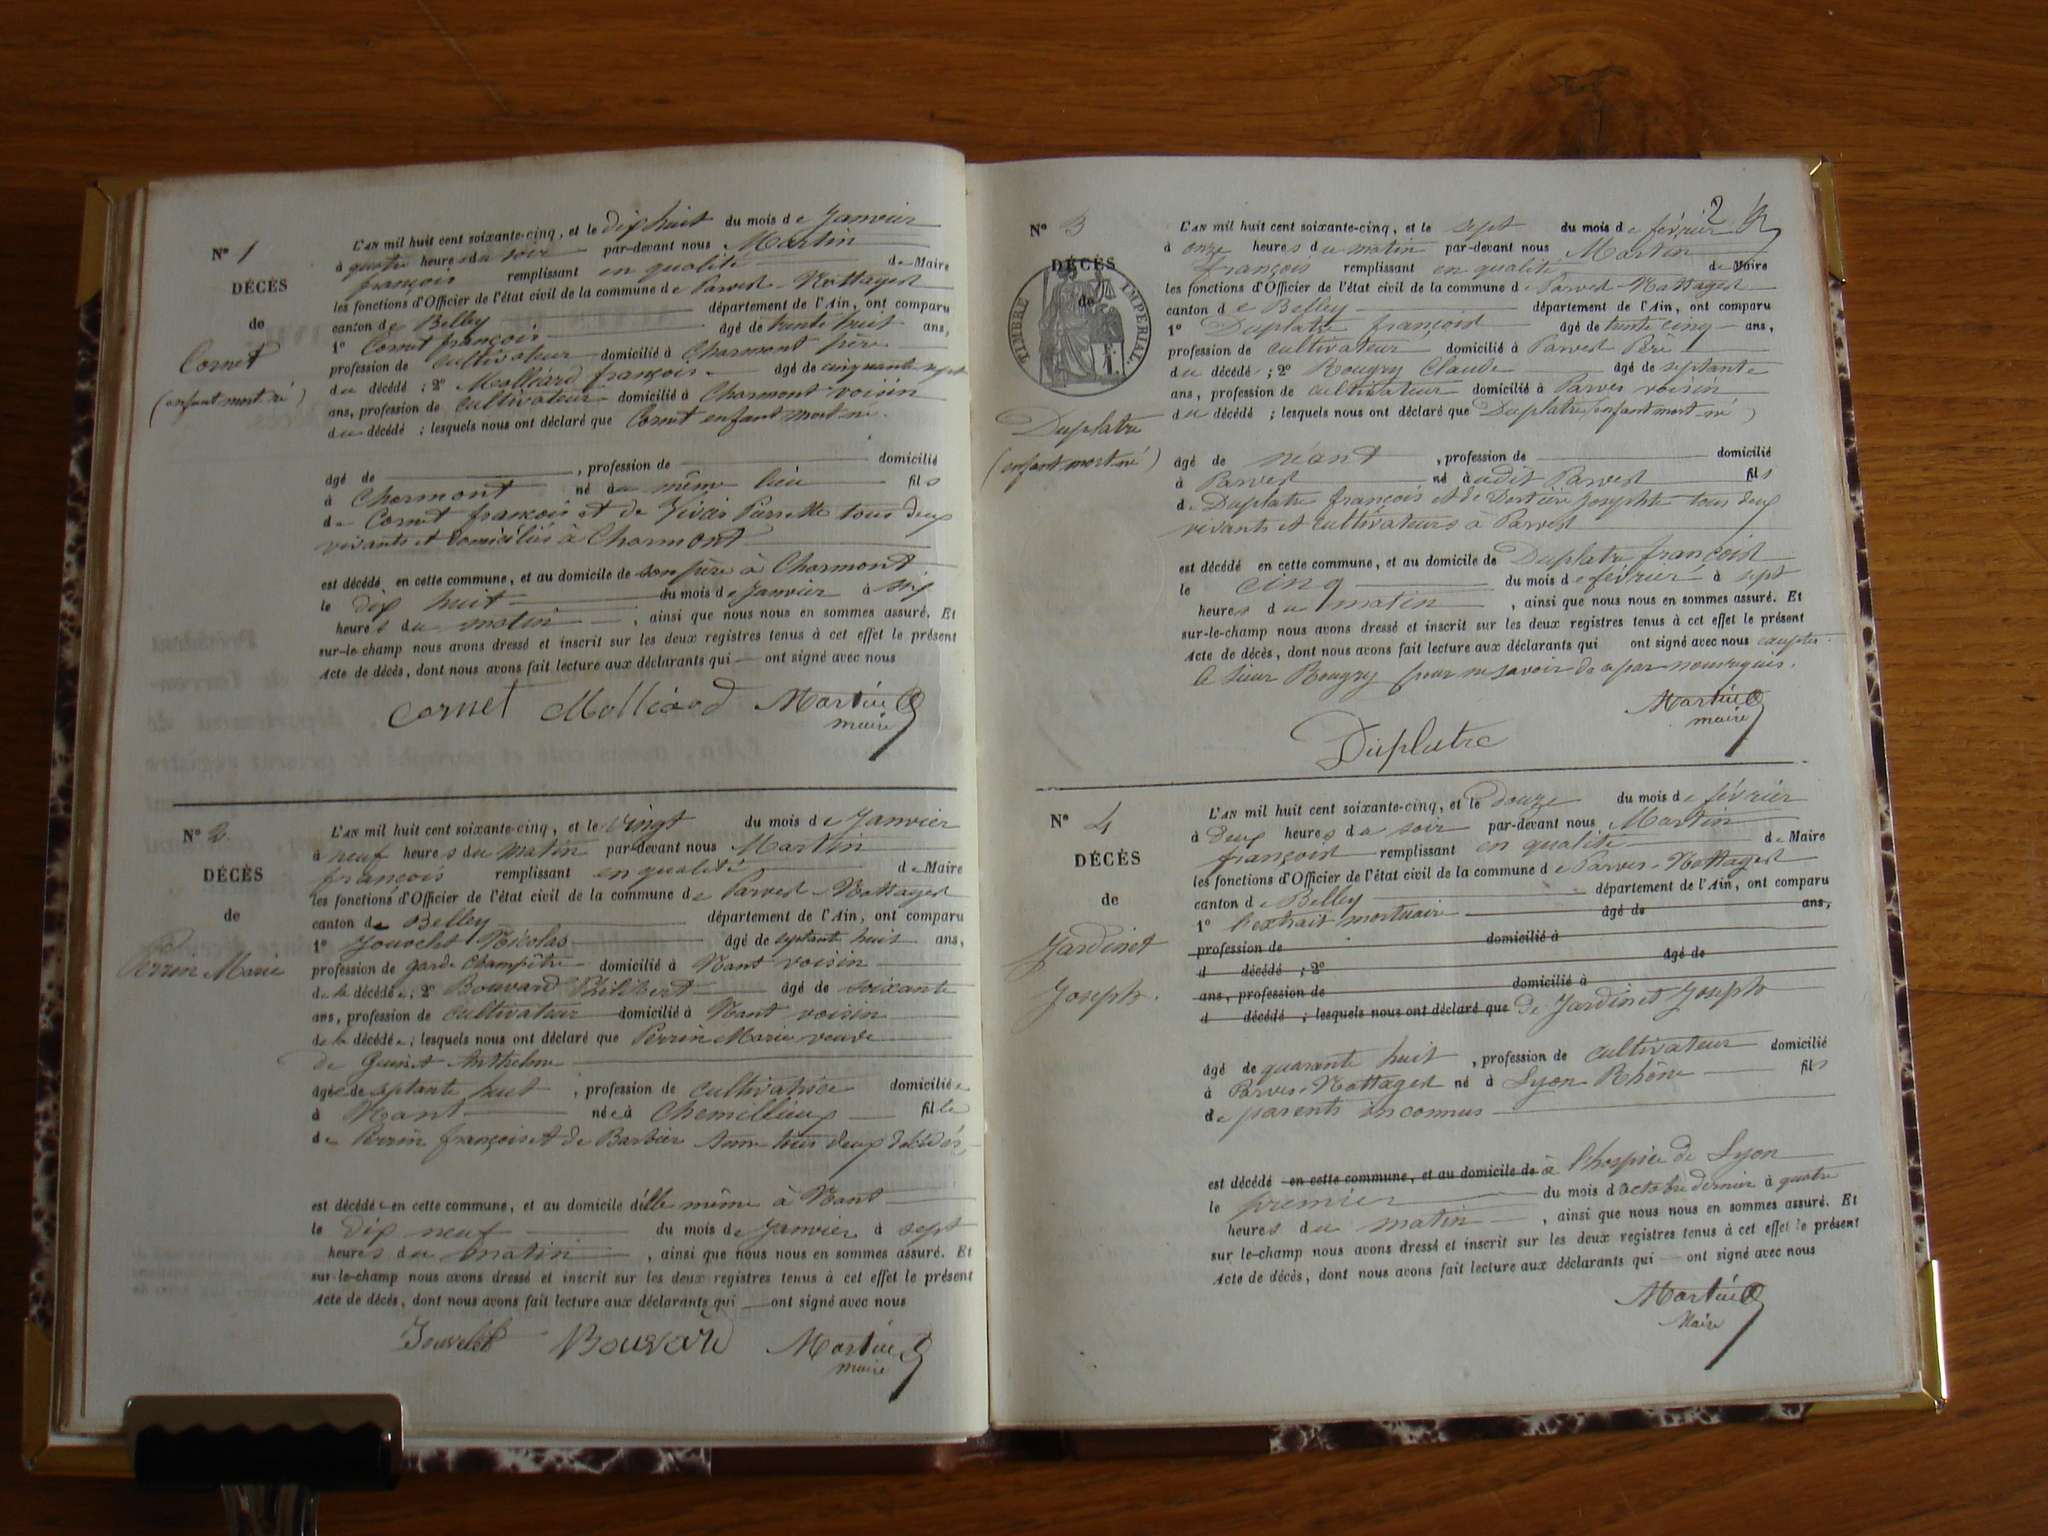 N° 1
DÉCÈS
de
Cornet
(enfant mort né)
L'AN mil huit cent soixante-cinq, et le dix huit du mois de Janvier
à quatre heures du soir par-devant nous Martin
françois remplissant en qualité de Maire
les fonctions d'Officier de l'état civil de la commune de Parves-Nattages
canton de Belley département de l'Ain, ont comparu
1° Cornet françois âgé de trente huit ans,
profession de cultivateur domicilié à Charmont père
du décédé ; 2° Molléard françois âgé de cinquante sept
ans, profession de cultivateur domicilié à Charmont voisin
du décédé ; lesquels nous ont déclaré que Cornet enfant mort né.
âgé de , profession de domicilié
à Charmont né au même lieu fils
de Cornet françois et de Pierrette tous deux
vivants et domiciliés à Charmont
est décédé en cette commune, et au domicile de son père à Charmont
le dix huit du mois de Janvier à six
heures du matin , ainsi que nous nous en sommes assuré. Et
sur-le-champ nous avons dressé et inscrit sur les deux registres tenus à cet effet le présent
Acte de décès, dont nous avons fait lecture aux déclarants qui ont signé avec nous
Cornet Molléard Martin
maire
N° 2
DÉCÈS
de
Perrin Marie
L'AN mil huit cent soixante-cinq, et le vingt du mois de Janvier
à neuf heures du matin par-devant nous Martin
françois remplissant en qualité de Maire
les fonctions d'Officier de l'état civil de la commune de Parves-Nattages
canton de Belley département de l'Ain, ont comparu
1° Jouvelet Nicolas âgé de septante huit ans,
profession de garde champêtre domicilié à Nant voisin
de la décédée ; 2° Bouvard Philibert âgé de soixante
ans, profession de cultivateur domicilié à Nant voisin
de la décédée ; lesquels nous ont déclaré que Perrin Marie veuve
de Guinet Anthelme
âgée de septante huit , profession de cultivatrice domiciliée
à Nant née à Chemillieux fille
de Perrin françois et de Barbier tous deux décédés
est décédée en cette commune, et au domicile d'elle même à Nant
le dix neuf du mois de Janvier à sept
heures du matin , ainsi que nous nous en sommes assuré. Et
sur-le-champ nous avons dressé et inscrit sur les deux registres tenus à cet effet le présent
Acte de décès, dont nous avons fait lecture aux déclarants qui ont signé avec nous
Jouvelet Bouvard Martin
maire
2
N° 3
DÉCÈS
de
TIMBRE IMPÉRIAL
Duplatre
(enfant mort né)
L'AN mil huit cent soixante-cinq, et le sept du mois de février
à onze heures du matin par-devant nous Martin
françois remplissant en qualité de Maire
les fonctions d'Officier de l'état civil de la commune de Parves-Nattages
canton de Belley département de l'Ain, ont comparu
1° Duplatre françois âgé de trente cinq ans,
profession de cultivateur domicilié à Parves Père
du décédé ; 2° Rougry Claude âgé de septante
ans, profession de cultivateur domicilié à Parves voisin
du décédé ; lesquels nous ont déclaré que Duplatre (enfant mort né)
âgé de néant , profession de domicilié
à Parves né audit Parves fils
de Duplatre françois et de Josephte tous deux
vivants et cultivateurs à Parves
est décédé en cette commune, et au domicile de Duplatre françois
le cinq du mois de février à sept
heures du matin , ainsi que nous nous en sommes assuré. Et
sur-le-champ nous avons dressé et inscrit sur les deux registres tenus à cet effet le présent
Acte de décès, dont nous avons fait lecture aux déclarants qui ont signé avec nous excepté
le sieur Rougry pour ne savoir de ce par nous requis.
Martin
maire
Duplatre
N° 4
DÉCÈS
de
Jardinet
Joseph.
L'AN mil huit cent soixante-cinq, et le douze du mois de février
à deux heures du soir par-devant nous Martin
françois remplissant en qualité de Maire
les fonctions d'Officier de l'état civil de la commune de Parves-Nattages
canton de Belley département de l'Ain, ont comparu
1° l'extrait mortuaire âgé de ans,
profession de domicilié à
d décédé ; 2° âgé de
ans, profession de domicilié à
d décédé ; lesquels nous ont déclaré que de Jardinet Joseph
âgé de quarante huit , profession de cultivateur domicilié
à Parves-Nattages né à Lyon Rhône fils
de parents inconnus
est décédé en cette commune, et au domicile de à l'hospice de Lyon
le premier du mois d'octobre dernier à quatre
heures du matin , ainsi que nous nous en sommes assuré. Et
sur le-champ nous avons dressé et inscrit sur les deux registres tenus à cet effet le présent
Acte de décès, dont nous avons fait lecture aux déclarants qui ont signé avec nous
Martin
Maire